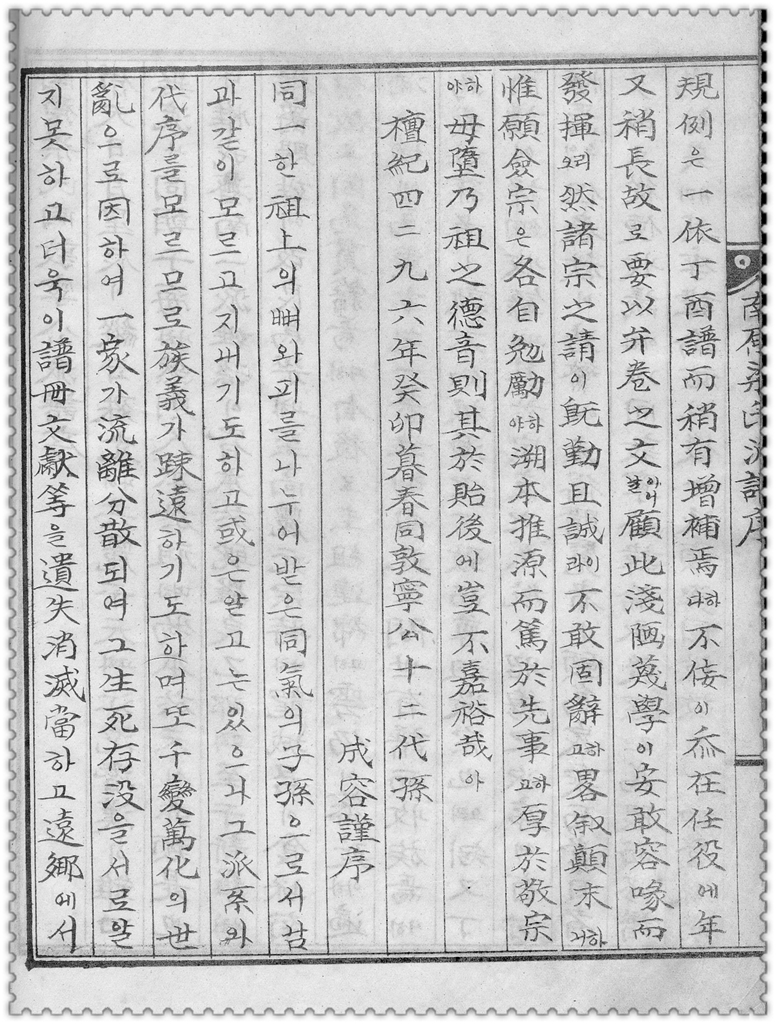 南原梁氏派譜序
規例은一依丁酉譜而稍有增補焉하다不侫이忝在任役에年
又稍長故로要以弁卷之文이어날顧此淺陋蔑學이安敢容喙而
發揮리오然諸宗之請이旣勤且誠이라不敢固辭하고畧敘顚末하거
惟願僉宗은各自勉勵하야溯本推源而篤於先事하고厚於敬宗
하야毋墮乃祖之德音則其於貽後에豈不嘉裕哉아
檀紀四二九六年癸卯暮春同敦寧公十二代孫
成容謹序
同一한祖上의뼈와피를나누어받은同氣의子孫으로서남
과같이모르고지내기도하고或은알고는있으나그派系와
代序를모르므로族義가踈遠하기도하며또千變萬化의世
亂으로因하여一家가流離分散되여그生死存没을서로알
지못하고더욱이譜冊文獻等을遺失消滅當하고遠鄕에서